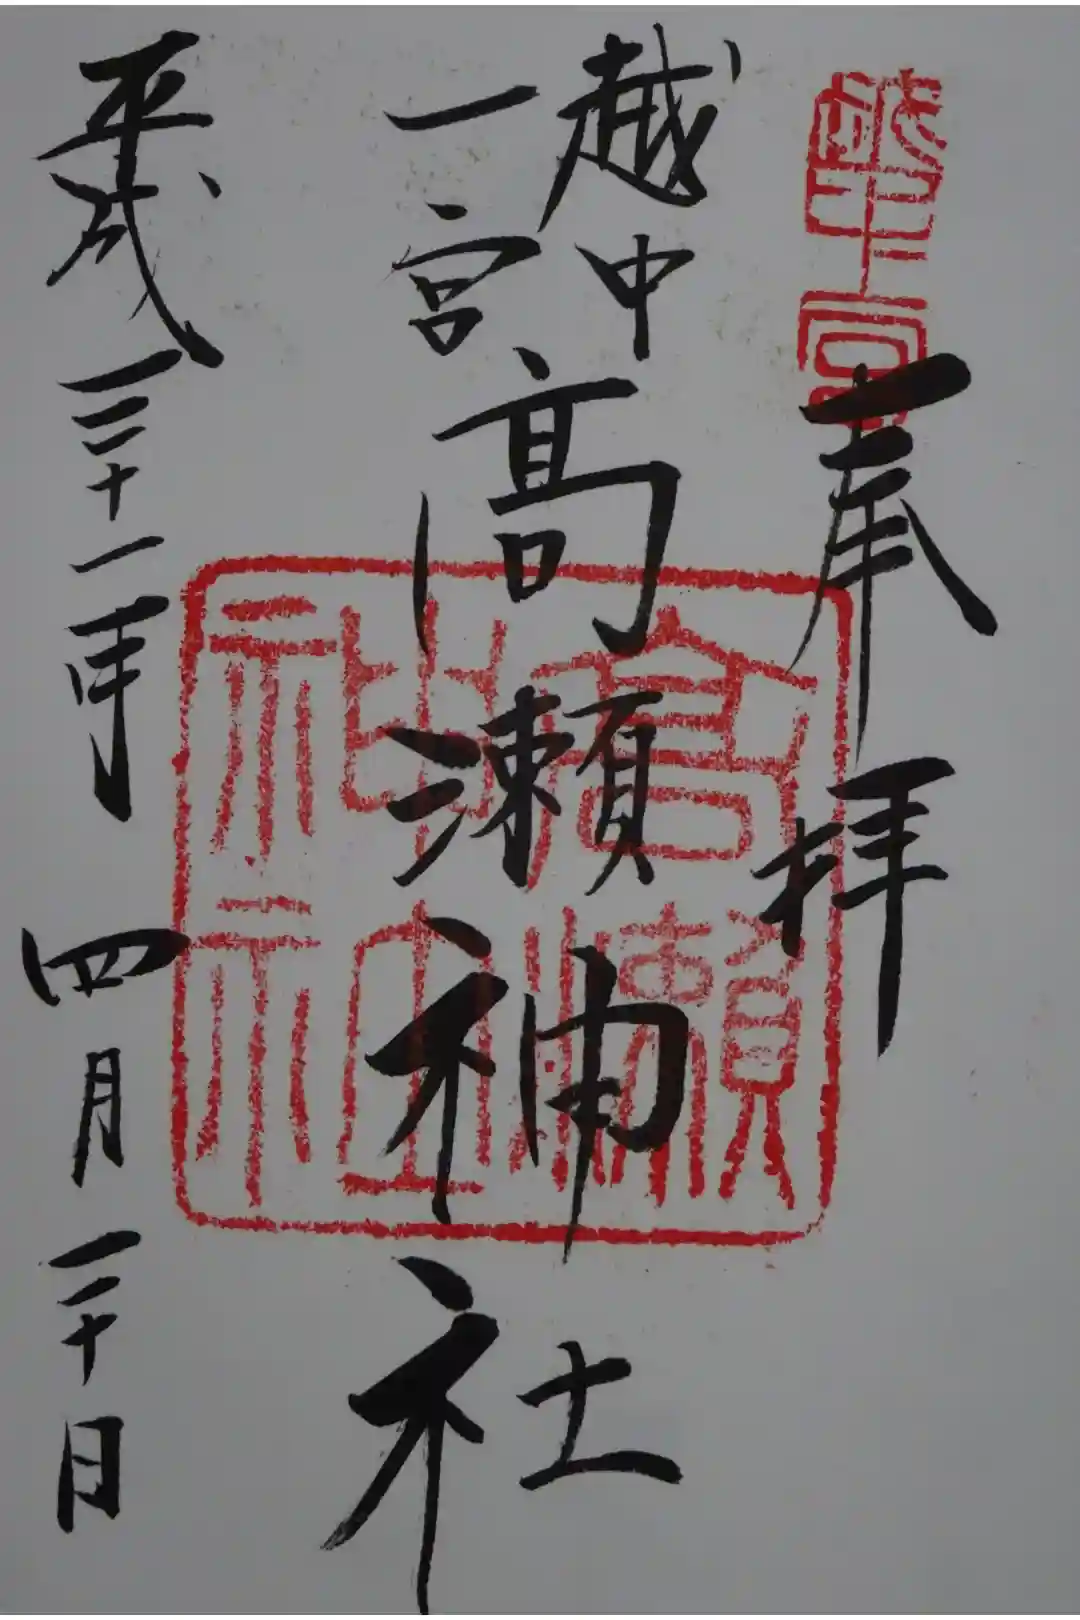 越中一宮
奉拝
越中
一宮
高瀬神社
高瀬
神社
平成三十一年四月二十日